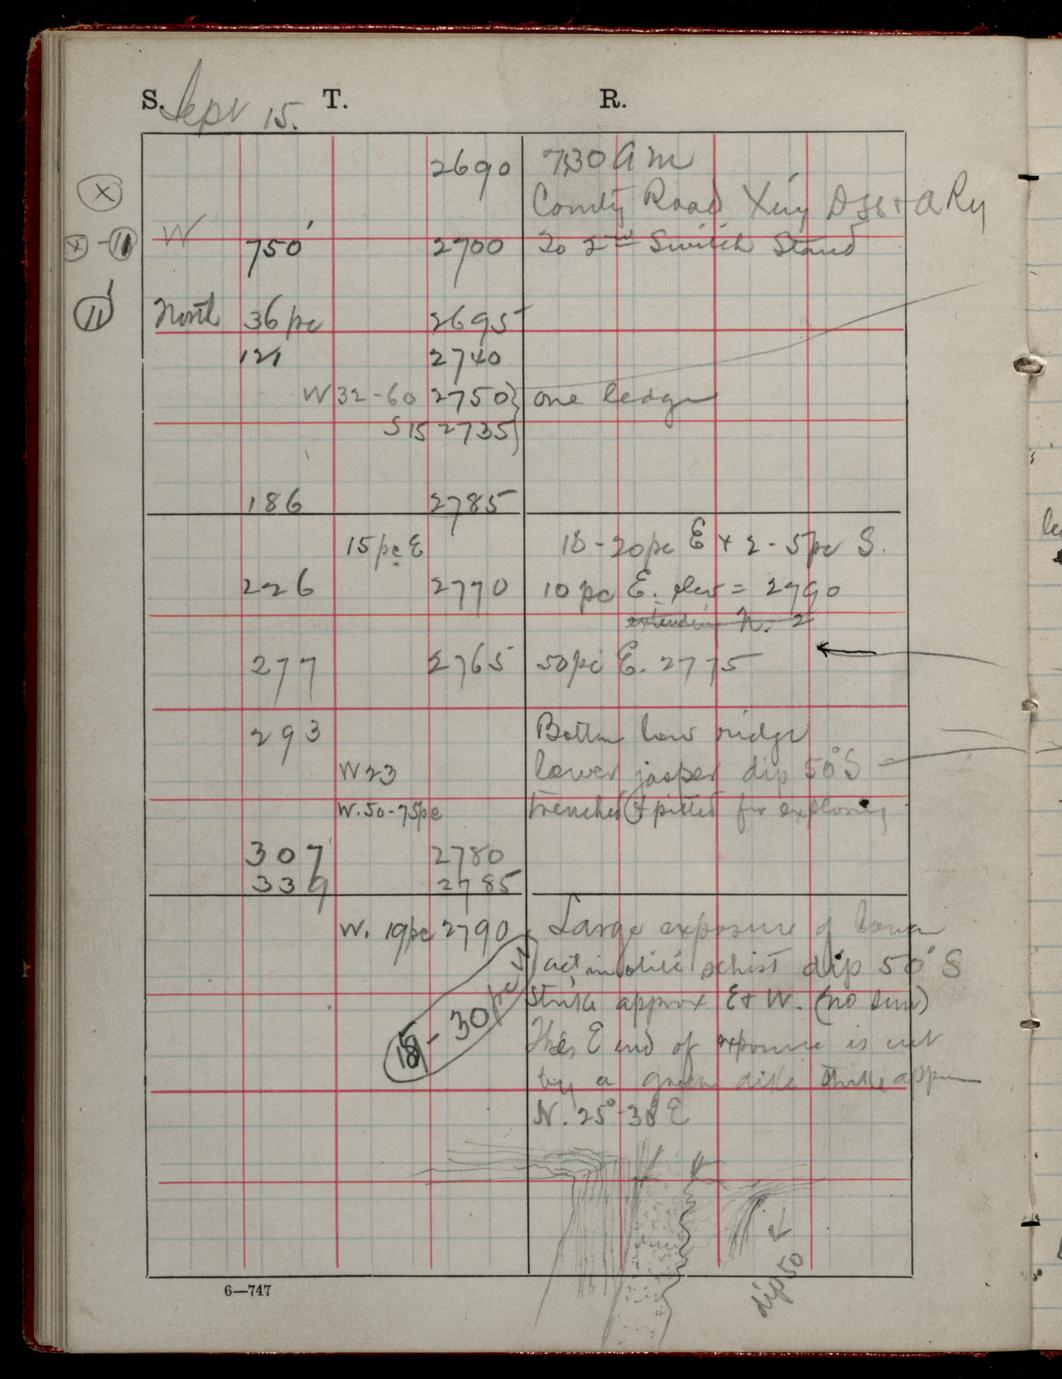 S. T. R.
Sept 15.
2690 7:30 a m
X County Road X'ing D SS & A Ry
X - 11 W 750' 2700 To 2nd Switch Stand
11' North 36 pc 2695
121 2740
W 32-60 2750 } one ledge
S 15 2735
186 2785
15 pc E 18-20 pc E & 2-5 pc S.
226 2770 10 pc E. elev = 2790
N. 2
277 2765 50 pc E. 2775
293 Bottom low ridge
W 23 lower jasper dip 50° S
W. 50-75 pc trenched & pitted for exploring
307 2780
339 2785
W. 19 pc 2790 Large exposure of
actinolitic schist dip 50° S
Strike approx E & W. (no sun)
15 - 30 pc W
This E end of exposure is cut
by a green dike strike approx
N. 25°-30 E
dip 50
6—747